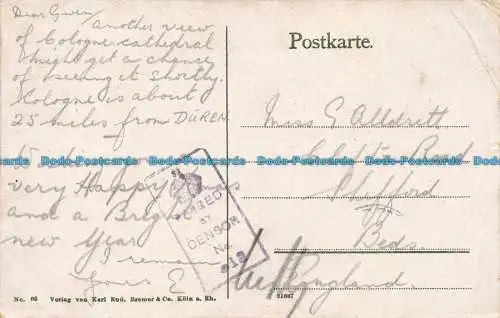 Dear Gwen
Another view
of Cologne cathedral
might get a chance
of seeing it shortly.
Cologne is about
25 miles from DÜREN
very Happy Xmas
and a Bright
new Year
I remain
Yours E
Postkarte.
Miss G Alldritt
Clifton Road
Shefford
Beds.
England.
PASSED
BY
CENSOR
No.
No. 95 Verlag von Karl Rud. Bremer & Co. Köln a. Rh.
Dodo-Postcards Dodo-Postcards Dodo-Postcards Dodo-Postcards Dodo-Postcards Dodo-Postcards